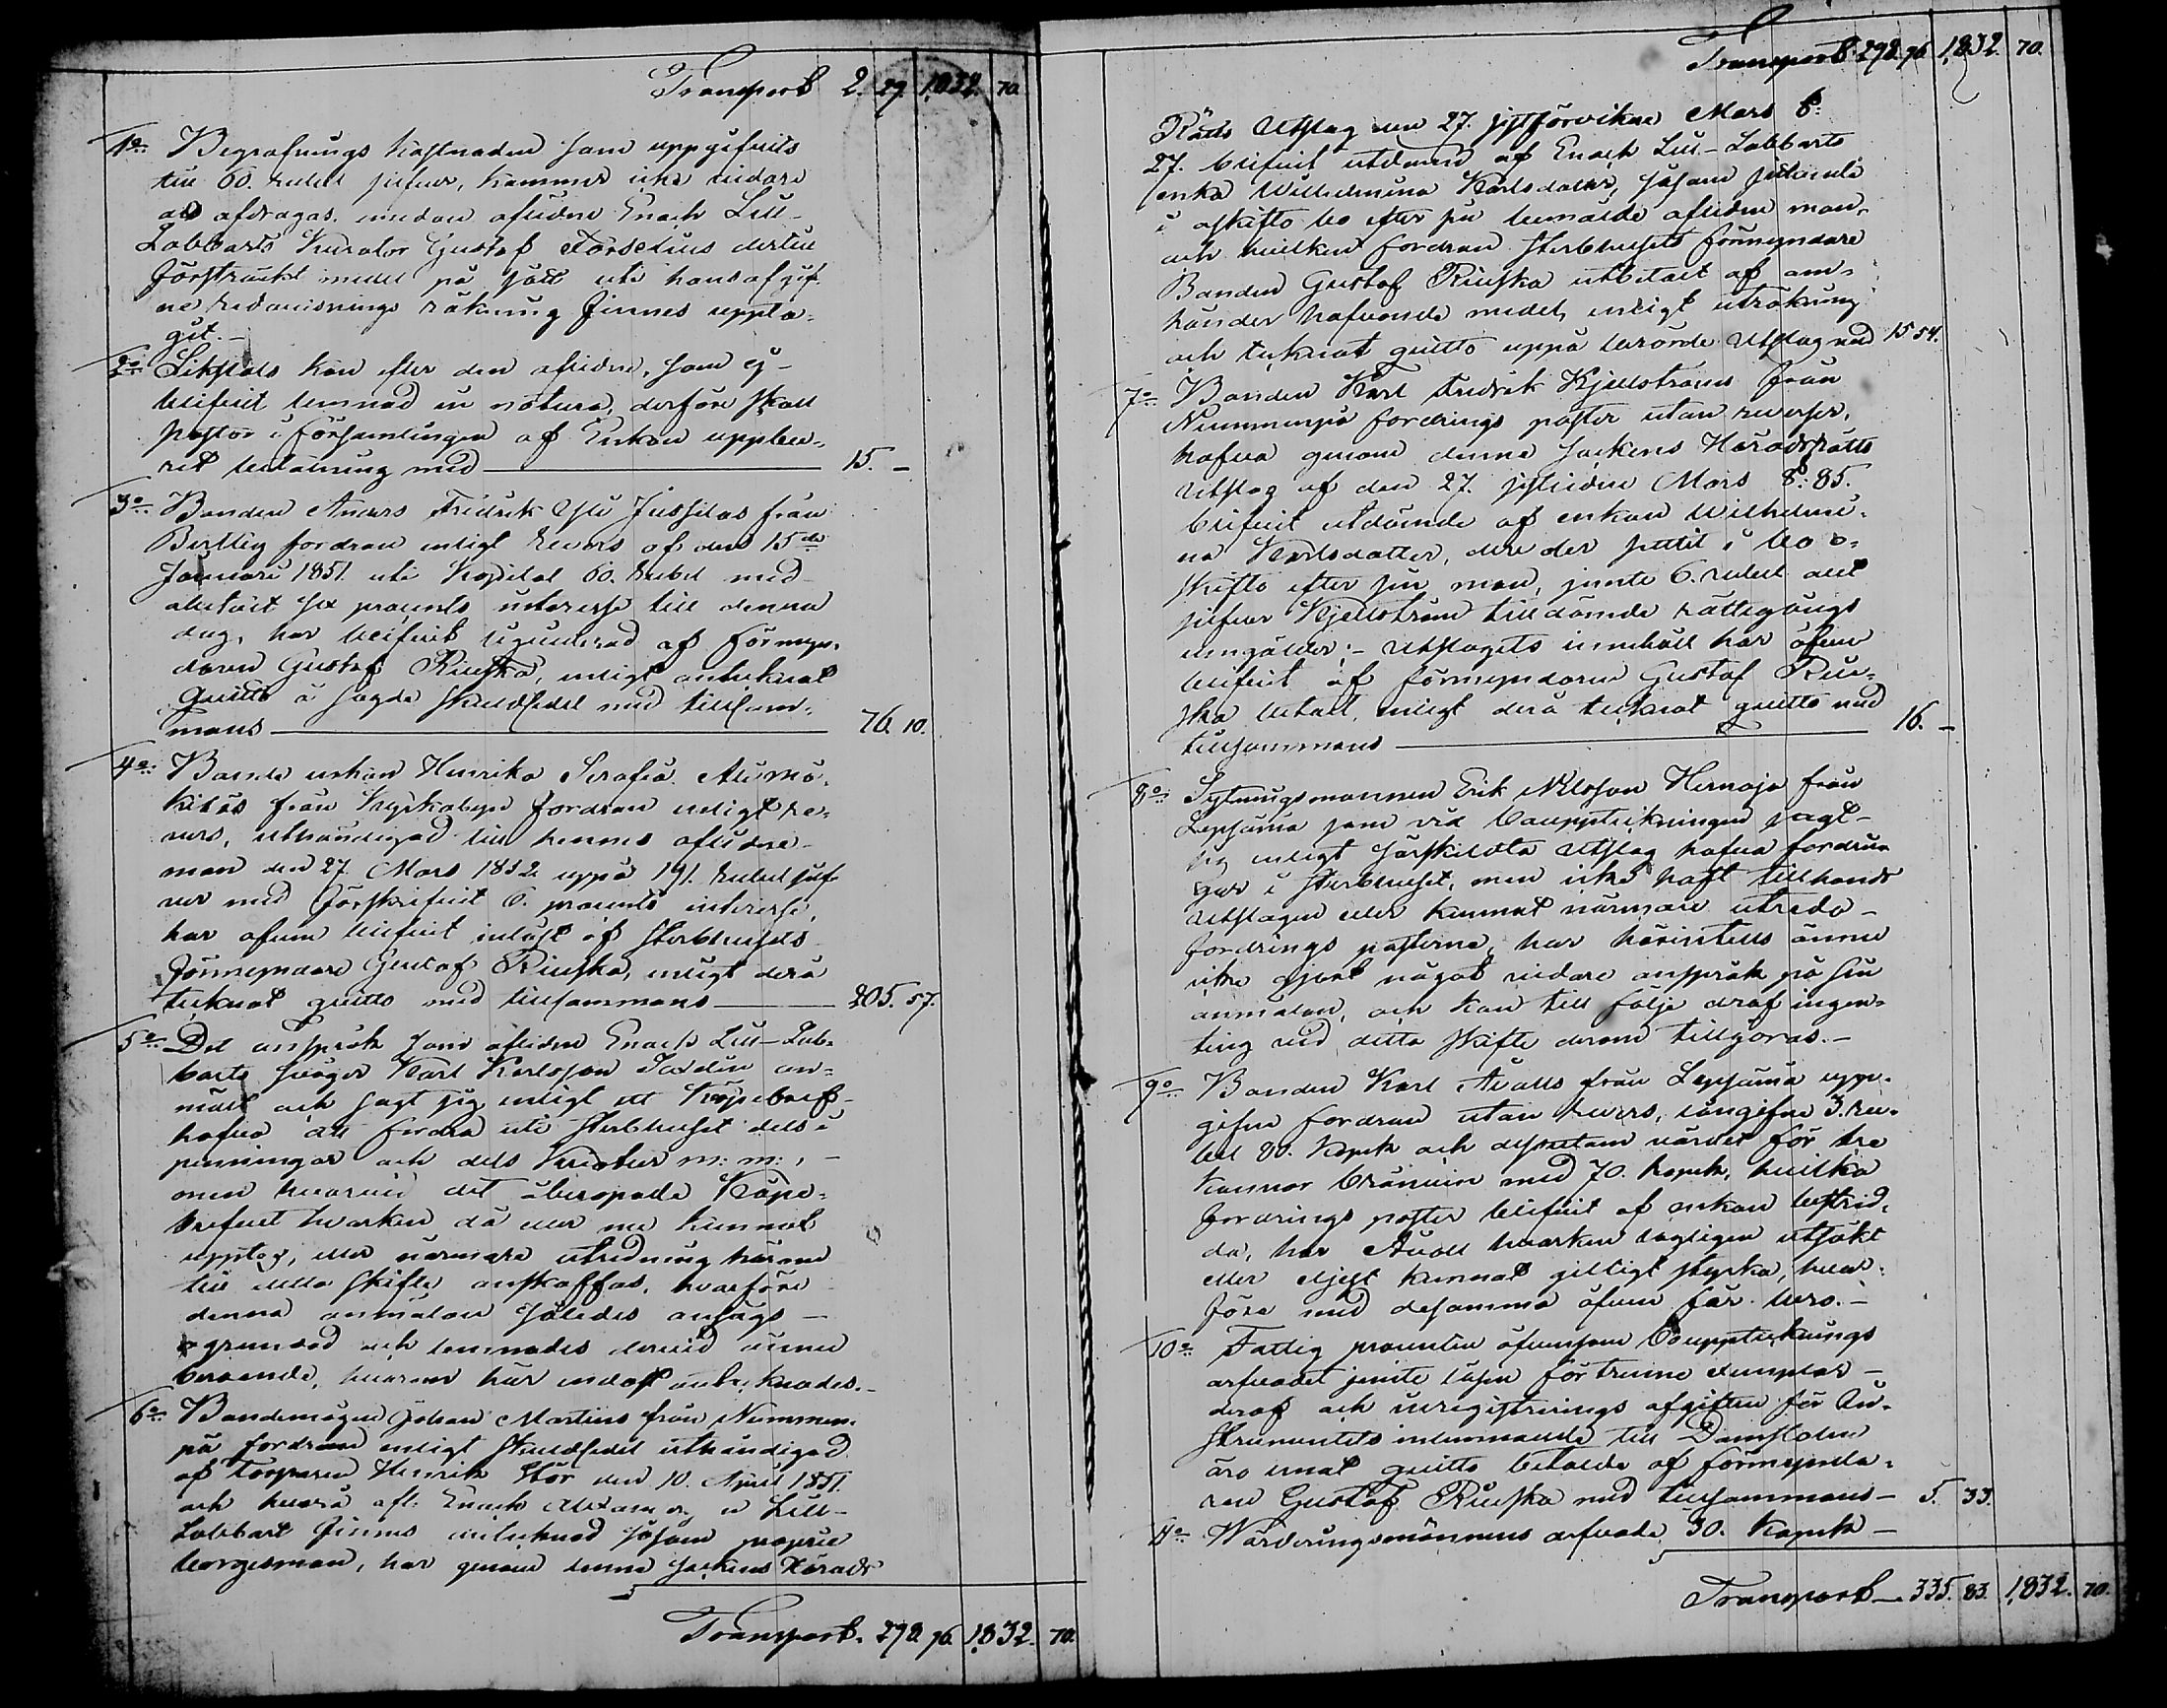 Transport 2. 29. 1,832. 70.
1o Begrafnings kostnaden som uppgifvits
till 60. rubel silfver, kommer icke vidare
att afdragas, medan aflidne Enoch Lill-
Labbarts Kurator Gustaf Forselius dertill
försträckt medel på sätt uti hans afgif-
ne redovisnings räkning finnes uppta-
git.-
2o Likstols kon efter den aflidne, som ej
blifvit lemnad in natura, derföre skall
Pastor i församlingen af Enkan uppbu-
rit betalning med 15. -
3o Bonden Anders Fridrik Yli Jussilas från
Berttby fordran enligt revers af den 15de
Januari 1851. uti Kapital 60. Rubel med
alsterlupit sex procents interesse till denna
dag, har blifvit liquiderad af Förmyn-
daren Gustaf Riuska, enligt antecknat
quitto å sagde skuldsedel med tillsam-
mans 76. 10.
4o Bonde enkan Henrika Serafia Alimä-
kiläs från Kyrkobyn fordran enligt re-
vers, uthändigad till hennes aflidne
man den 27. Mars 1832. uppå 191. Rubel silf-
ver med förskrifvit 6. procents interesse,
har äfven blifvit inlöst af Sterbhusets
Förmyndare Gustaf Riuska, enligt derå
tecknat quitto med tillsammans 205. 57.
5o Det anspråk som aflidne Enoch Lill-Lab-
barts svåger Karl Karlsson Taxdin an-
mält och sagt sig enligt ett Köpebref
hafva att fordra uti Sterbhuset dels i
penningar och dels Kreatur m: m:, -
men hvarvid det åberopade Köpe-
brefvet hvarken då eller nu kunnat
uppte, eller närmare utredning härom
till detta skifte anskaffas, hvarföre
denna anmälan således ansågs -
ogrundad och lemnades dervid ännu
beroende, hvarom här endast antecknades.-
6o Bondemågen Johan Martins från Nummen-
pä fordran enligt skuldsedel uthändigad
af Torparen Henrik Stör den 10. April 1851.
och hvarå afl: Enoch
Labbart finnes intecknad såsom proprie
borgesman, har genom denna Sockens Härads
Transport. 298. 96. 1,832. 70.
Transport 298. 96. 1,832. 70.
Rätts Utslag den 27. sistförvikne Mars 8:
27. blifvit utdömd af Enoch Lill-Labbarts
enka Wilhelmina Karlsdotter, såsom sittande
i oskifto bo efter sin bemälde aflidne man,
och hvilken fordran Sterbhusets förmyndare
Bonden Gustaf Riuska utbetalt af om-
händer hafvande medel, enligt uträkning
och tecknat quitto uppå berörde Utslag med 15 54.
7o Bonden Karl Fredrik Kjellströms från
Nummenpä fordrings poster utan reverser,
hafva genom denna Sockens Häradsrätts
Utslag af den 27. sistlidne Mars 8: 85.
blifvit utdömde af enkan Wilhelmi-
na Karlsdotter, der der suttit i bo o-
skifto efter sin man, jemte 6. rubel allt
silfver Kjellström tilldömde rättegångs
omgälder; - Utslagets innehåll har äfven
blifvit af förmyndaren Gustaf Riu-
ska betalt, enligt derå tecknat quitto med
tillsammans 16. -
8o Sytningsmannen Erik Nilsson Hernaja från
Lepsäma som vid bouppteckningen sagt
sig enligt särskildta Utslag hafva fordrin-
gar i Sterbhuset, men icke haft tillhands
Utslagen eller kunnat närmare utreda
fordrings posterna, har härintills ännu
icke gjort något vidare anspråk på sin
anmälan, och kan till följe draf ingen-
ting vid detta skifte derom tillgöras.-
9o Bonden Karl Åvalls från Lepsämä upp-
gifne fordran utan revers, 3. ru-
bel 80. Kopek och dessutom värdet för tre
kannor bränvin med 70. kopek, hvilka
fordrings poster blifvit af enkan bestrid-
da, har Åvall hvarken lagligen utsökt
eller eljest kunnat giltigt styrka, hvar-
före med desamma äfven får bero.-
10o Fattig procenten äfvensom Bouppteknings
arfvodet jemte lösen för trenne exemplar
deraf och inregistrerings afgiften för In-
strumentets inlemnande till Domstolen
äro emot quitto betalde af förmynda-
ren Gustaf Riuska med tillsammans - 5. 33.
11o Wärderingsmännens arfvode 30. Kopek -
Transport - 335. 83. 1,832. 70.